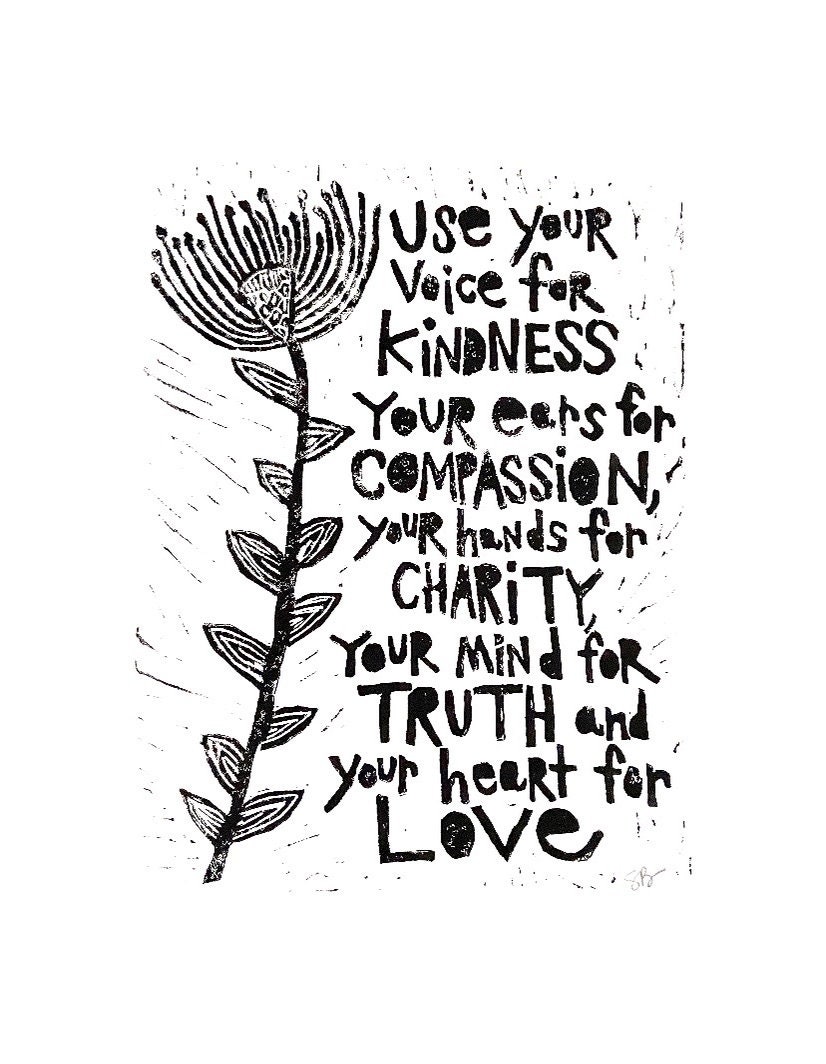 Use your
Voice for
KiNDNESS
YOUR ears for
COMPASSiON,
your hands for
CHARiTY,
YOUR MiNd foR
TRUTH and
your heart for
LOVe
SB